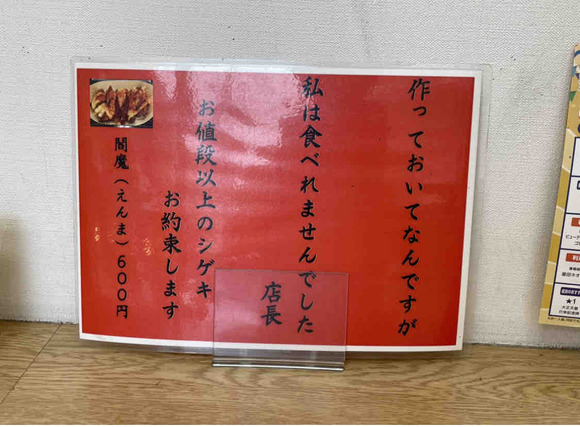 作っておいてなんですが
私は食べれませんでした
店長
お値段以上のシゲキ
お約束します
閻魔(えんま)600円